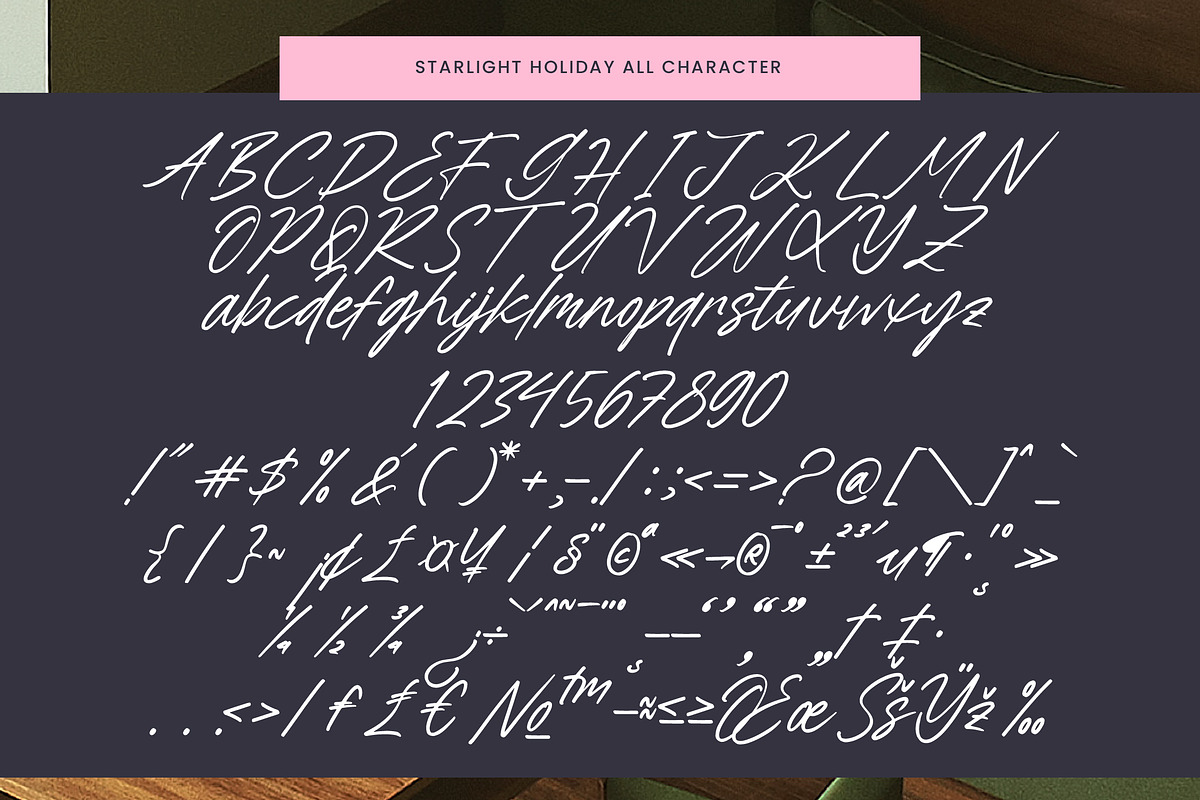 STARLIGHT HOLIDAY ALL CHARACTER
ABCDEFGHIJKLMN
OPQRSTUVWXYZ
abcdefghijklmnopqrstuvwxyz
1234567890
!"#$%&'()*+,-./:;<=>?@[\]^_`
{|}~¡¢£¤¥¦§¨©ª«¬®¯°±²³´µ¶·¸¹º»
¼½¾¿÷ˋˊˆ˜–—‘’‚“”„†‡•
...‹›⁄ƒ₤€№™−≈≤≥ŒœŠšŸž‰